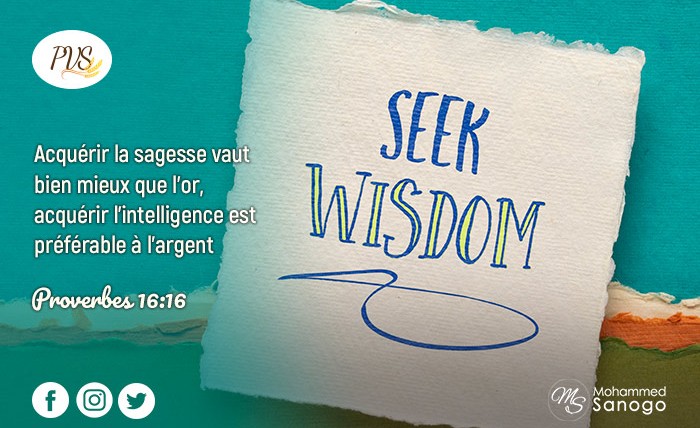 PVS
Acquérir la sagesse vaut
bien mieux que l'or,
acquérir l'intelligence est
préférable à l'argent
Proverbes 16:16
SEEK
WISDOM
MS
Mohammed
Sanogo